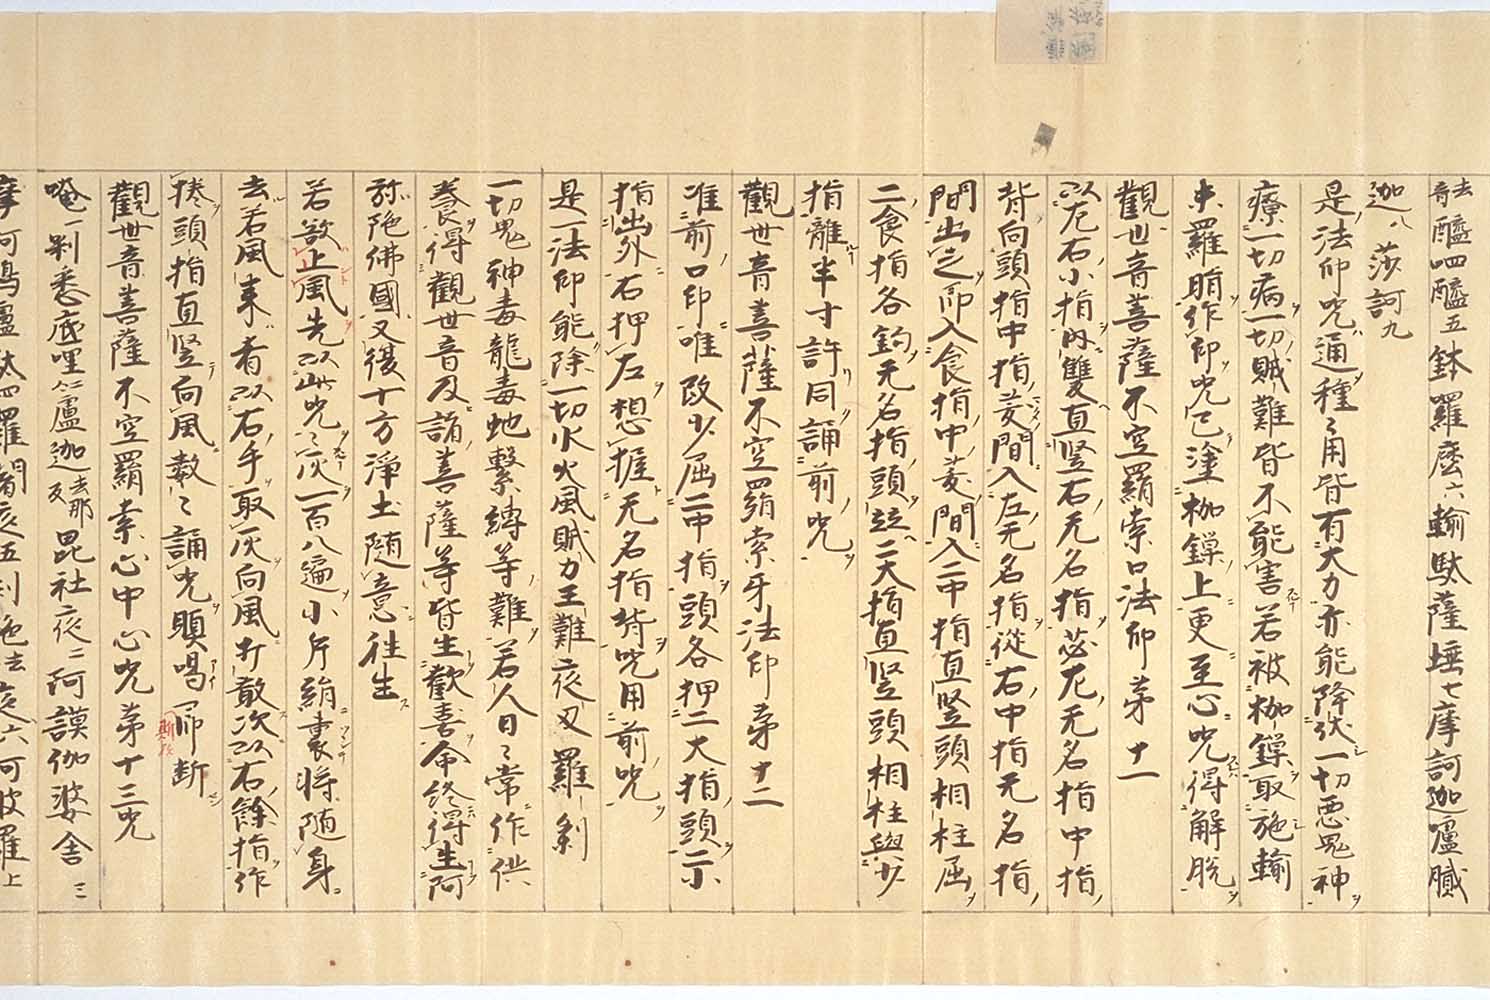 去音醯呬醯五鉢羅麼六輸馱薩埵七摩訶迦嚧膩
迦八莎訶九
是法印呪通種々用皆有大力亦能降伏一切惡鬼神
療一切病一切賊難皆不能害若被枷鏁取施輸
末羅脂作印呪已塗枷鏁上更至心呪得解脱
觀世音菩薩不空羂索口法印第十一
以左右小指内雙直竪右无名指苾左无名指中指
背向頭指中指苃間入左无名指從右中指无名指
間出之即入食指中苃間入二中指直竪頭相柱屈
二食指各鈎无名指頭竝二大指直竪頭相柱與少
指離半寸許同誦前呪
觀世音菩薩不空羂索牙法印第十二
准前口印唯改少屈二中指頭各押二大指頭二小
指出外右押左想握无名指背呪用前呪
是一法印能除一切水火風賊力王難夜叉羅剎
一切鬼神毒龍毒虵繫縛等難若人日々常作供
養得觀世音及諸菩薩等皆生歡喜命終得生阿
弥陁佛國又復十方淨土随意往生
若欲止風先以此呪々灰一百八遍小片絹裹将随身
去若風来者以右手取灰向風打散次以右餘指作
捲頭指直竪向風數々誦呪瞋喝即断
觀世音菩薩不空羂索心中心呪第十三呪
唵一剎悉底哩二合嚧迦去那反毘社夜二阿謨伽婆舍三
摩訶鳴嚧馱四羅闍湳夜五剎馳去夜六訶皮羅上